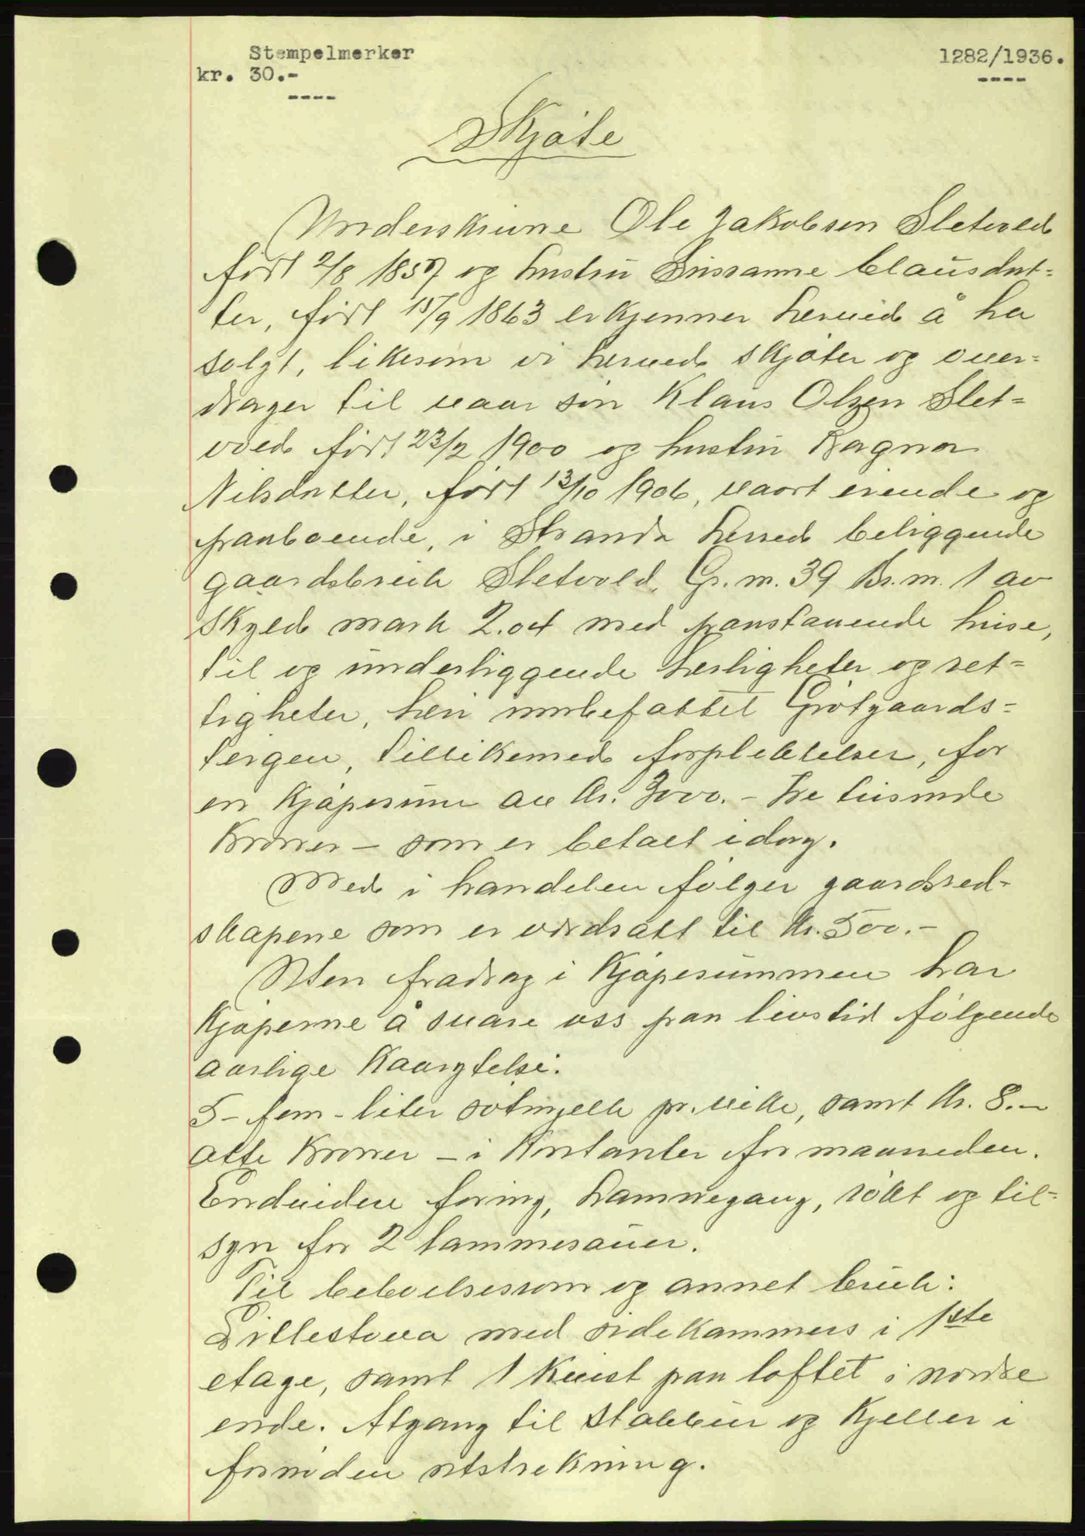 Stempelmerker
kr. 30.-
----
1282/1936.
----
Skjøte
Underskrivne Ole Jakobsen Sletvold
født 2/8 1857 og hustru Sussanne Clausdat-
ter, født 15/9 1863 erkjenner herved å ha
solgt, likesom vi herved skjøter og over-
drager til vaar søn Klaus Olsen Slet-
vold født 23/2 1900 og hustru Ragna
Nilsdatter, født 13/10 1906, vaart eiende og
paaboende, i Stranda herred beliggende
gaardsbruk Sletvold, Gr. nr. 39 Br. nr. 1 av
Skyld mark 2.04 med paastaaende huse,
til og underliggende herligheter og ret-
tigheter, heri innbefattet Grøtgaards-
teigen, tillikemed forpliktelser, for
en kjøpesum av kr. 3000.- tre tusinde
kroner - som er betalt idag.
Med i handelen følger gaardsred-
skapene som er værdsatt til kr. 500.-
Uten fradrag i Kjøpesummen har
Kjøperne å svare oss paa livstid følgende
aarlige Kaarytelse:
5- fem - liter søtmjelk pr. uike, samt kr. 8.-
atte kroner - i kontanter for maaneden.
Endvidere foring, hamnegang, røkt og til-
syn for 2 lammesauer.
Til beboelsesrom og annet bruk:
Lillestova med sidekammers i 1ste
etage, samt 1 Kvist paa loftet i nordre
ende. Atgang til Stabbur og Kjeller i
fornøden utstrekning.